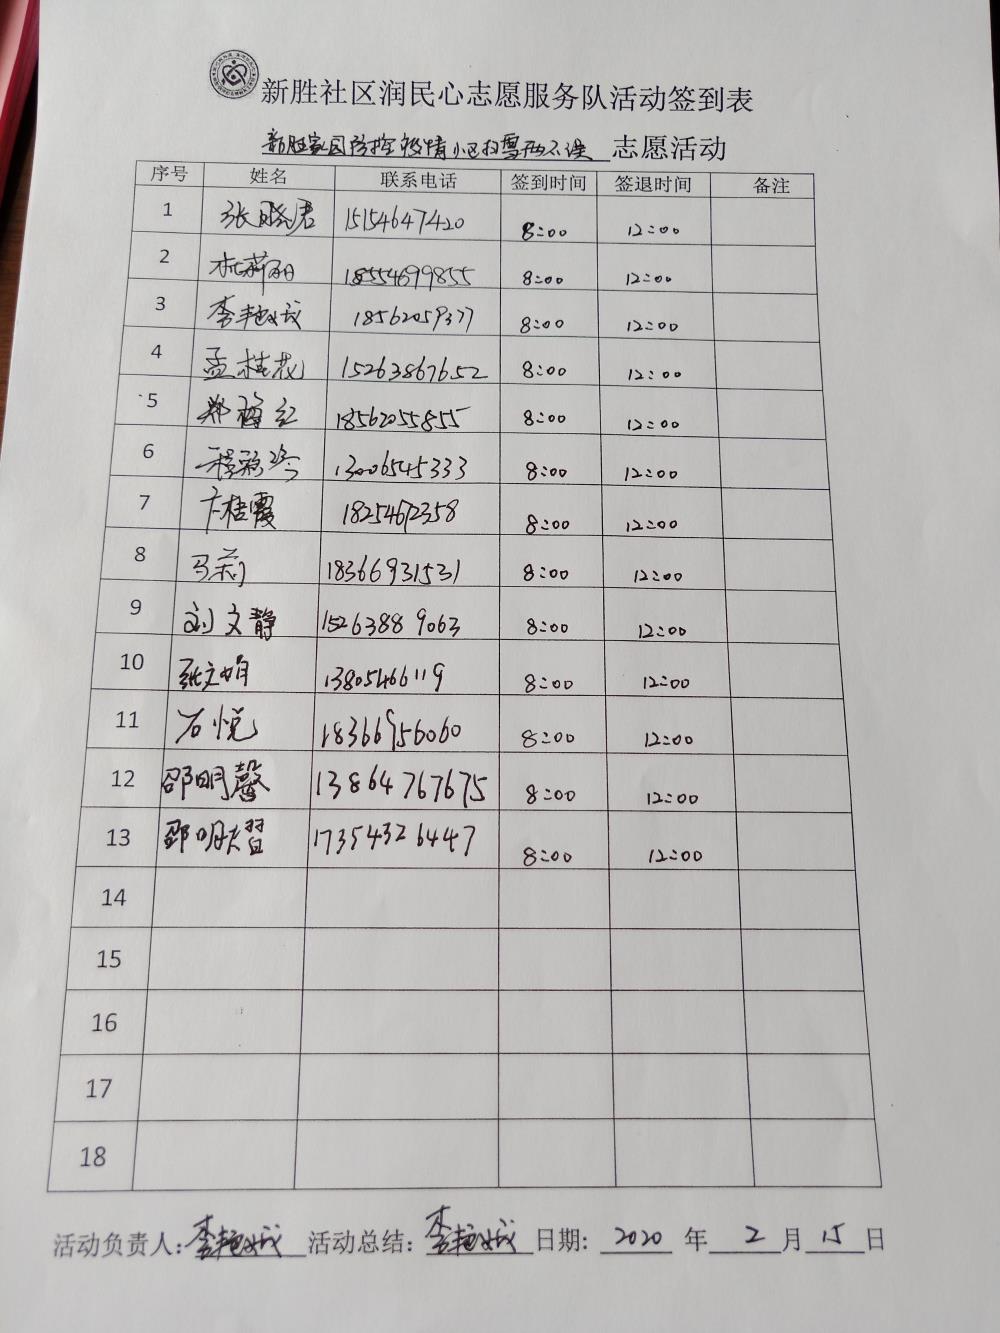 新胜社区润民心志愿服务队活动签到表
新胜家园防控疫情小区扫雪两不误 志愿活动
序号 姓名 联系电话 签到时间 签退时间 备注
1 张晓君 15154647420 8:00 12:00
2 杜莉阳 18554699855 8:00 12:00
3 李艳成 18562059377 8:00 12:00
4 孟桂花 15263867652 8:00 12:00
5 郑梅红 18562055855 8:00 12:00
6 13006545333 8:00 12:00
7 卞桂霞 18254672358 8:00 12:00
8 马莉 18366931531 8:00 12:00
9 刘文静 15263889063 8:00 12:00
10 张文娟 13805466119 8:00 12:00
11 石悦 18366956060 8:00 12:00
12 邵明馨 13864767675 8:00 12:00
13 邵明 17354326447 8:00 12:00
14
15
16
17
18
活动负责人: 李艳成 活动总结: 李艳成 日期: 2020 年 2 月 15 日